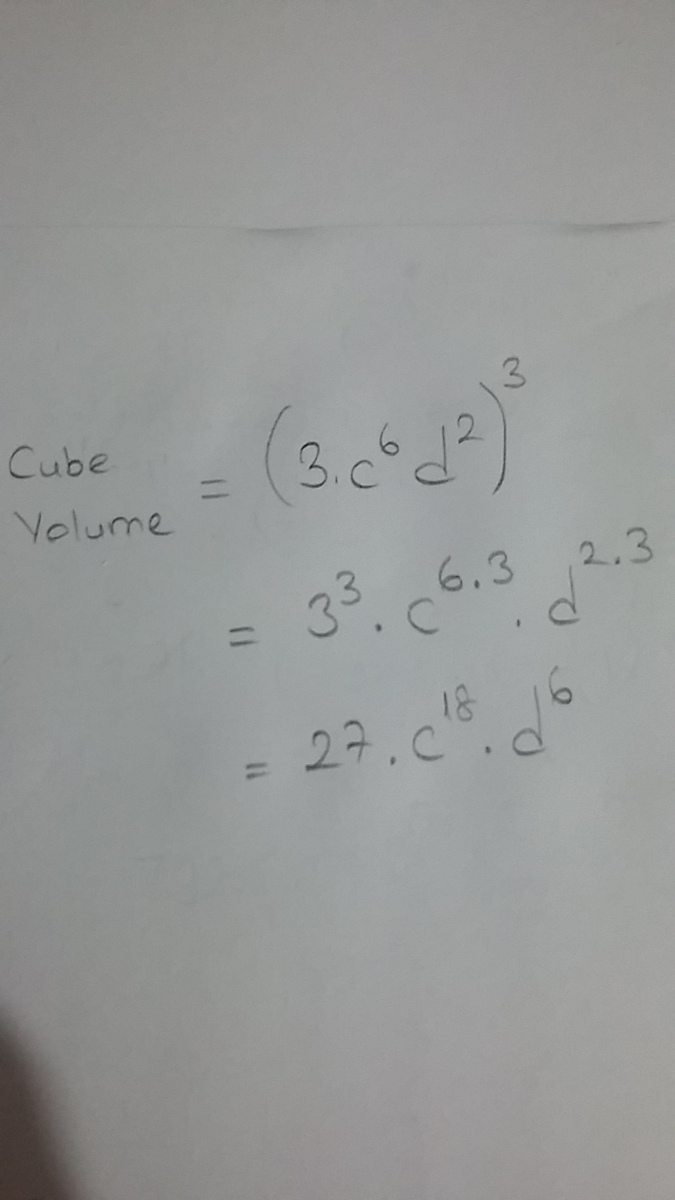 Cube Volume = (3.c⁶ d²)³
= 3³ . c⁶·³ . d²·³
= 27 . c¹⁸ . d⁶